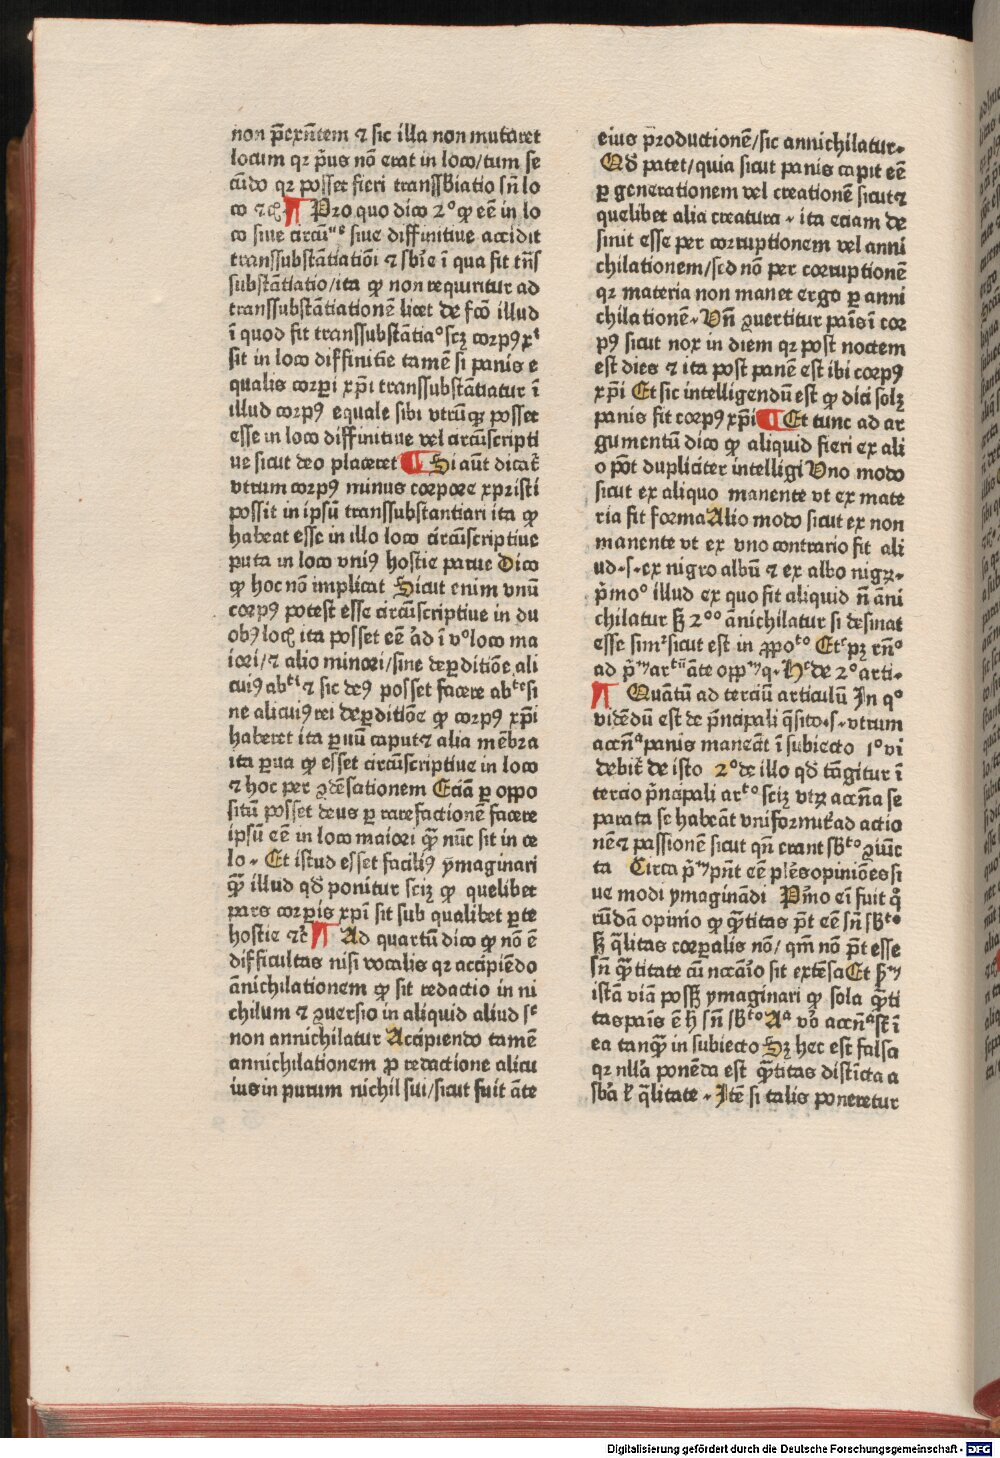 non p̄exn̄tem ⁊ sic illa non mutaret
locum qꝛ p̄us nō erat in loco/tum se
cūdo qꝛ posset fieri transsb̄iatio sn̄ lo
co ⁊cꝭ ¶ Pro quo dico 2° ꝙ eē in lo
co siue circū siue diffinitiue accidit
transsubstātiatiōi ⁊ sbīe ī qua fit tn̄s
substātiatio/ita ꝙ non requiritur ad
transsubstātiationē licet de fcō illud
ī quod fit transsubstātia° scꝫ corpꝰ xͥ
sit in loco diffinitīe tamē si panis e
qualis corpi xp̄i transsubstātiatur ī
illud corpꝰ equale sibi vtrūqꝫ posset
esse in loco diffinitiue vel circūscripti
ue sicut deo placeret ¶ Si aūt dicat̄
vtrum corpꝰ minus corpore xpristi
possit in ipsū transsubstantiari ita ꝙ
habeat esse in illo loco circūscriptiue
puta in loco vniꝰ hostie parue Dico
ꝙ hoc nō implicat Sicut enim vnū
corpꝰ potest esse circūscriptiue in du
obꝰ locꝭ ita posset eē ad ī v° loco ma
iori/⁊ alio minori/sine deꝑditiōe ali
cuiꝰ abᵗⁱ ⁊ sic deꝰ posset facere abᵗᵉ si
ne alicuiꝰ rei deꝑditiōe ꝙ corpꝰ xp̄i
haberet ita ꝑuū caput ⁊ alia mēbra
ita ꝑua ꝙ esset circūscriptiue in loco
⁊ hoc per ꝯdēsationem Eciā ꝑ oppo
sitū posset deus ꝑ rarefactionē facere
ipsū eē in loco maiori qꝫ nūc sit in ce
lo. Et istud esset faciliꝰ ymaginari
qꝫ illud qd̄ ponitur sciꝫ ꝙ quelibet
pars corꝑis xp̄i sit sub qualibet ꝑte
hostie ⁊c̄ ¶ Ad quartū dico ꝙ nō ē
difficultas nisi vocalis qꝛ accipiēdo
ānichilationem ꝙ sit redactio in ni
chilum ⁊ ꝯuersio in aliquid aliud sᶜ
non annichilatur Accipiendo tamē
annichilationem ꝓ redactione alicu
ius in purum nichil sui/sicut fuit āte
eius productionē/sic annichilatur.
Qd̄ patet/quia sicut panis capit eē
ꝑ generationem vel creationē sicut ⁊
quelibet alia creatura. ita eciam de
sinit esse per corruptionem vel anni
chilationem/sed nō per corruptionē
qꝛ materia non manet ergo ꝑ anni
chilationē. Vn̄ ꝯuertitur pais̄ ī cor
pꝰ sicut nox in diem qꝛ post noctem
est dies ⁊ ita post panē est ibi corpꝰ
xp̄i Et sic intelligendū est ꝙ dici solꝫ
panis fit corpꝰ xp̄i ¶ Et tunc ad ar
gumentū dico ꝙ aliquid fieri ex ali
o pōt dupliciter intelligi Vno modo
sicut ex aliquo manente vt ex mate
ria fit forma Alio modo sicut ex non
manente vt ex vno contrario fit ali
ud.s.ex nigro albū ⁊ ex albo nigꝝ.
p̄mo° illud ex quo fit aliquid n̄ āni
chilatur sꝫ 2°° ānichilatur si desinat
esse simʳ sicut est in ꝓpoᵗ° Etᶜ pꝫ rn̄°
ad p̄ arᵗ āte opp q. Hᶜ de 2° arti.
¶ Quātū ad terciū articulū In q°
vidēdū est de p̄ncipali q̄sito.s.vtrum
accn̄ᵃ panis maneāt ī subiecto 1° vi
debit̄ de isto 2° de illo qd̄ tāgitur ī
tercio p̄ncipali arᵗ° sciꝫ vtꝝ accn̄a se
parata se habeāt vniformit̄ ad actio
nē ⁊ passionē sicut qn̄ erant sb̄ᵗ° ꝯiūc
ta Circa p̄ pn̄t eē pl̄es opiniōes si
ue modi ymaginādi Pᵒmo ei̅ fuit q̊
rūdā opinio ꝙ q̄titas p̄t eē sn̄ sb̄ᵗ°.
sꝫ q̄litas corꝑalis nō/ qm̄ nō p̄t esse
sn̄ q̄titate cū nccāio sit extēsa Et sꝫ
istā viā possꝫ ymaginari ꝙ sola q̄ti
tas pais̄ ē h̄ sn̄ sb̄ᵗ° Aᵃ vo̅ accn̄ᵃ st̄ ī
ea tanqꝫ in subiecto Sꝫ hec est falsa
qꝛ nll̄a ponēda est q̄titas distīcta a
sb̄a ⁊ q̄litate. Itē si talis poneretur
Digitalisierung gefördert durch die Deutsche Forschungsgemeinschaft - DFG